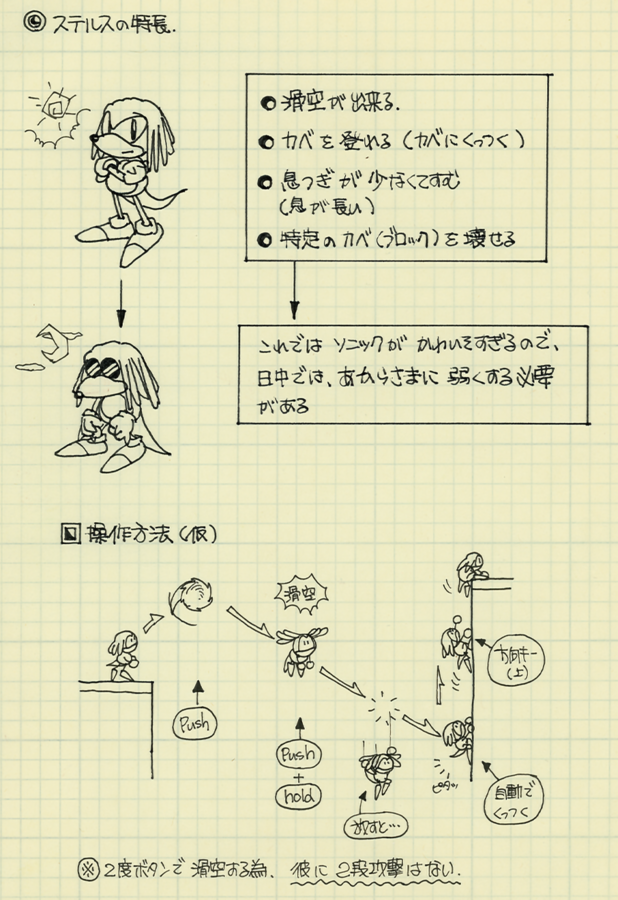 ステルスの特長.
滑空が出来る.
カベを登れる (カベにくっつく)
息つぎが少なくてすむ
(息が長い)
特定のカベ(ブロック)を壊せる
これでは ソニックが かわいそすぎるので、
日中では、あからさまに 弱くする必要
がある
操作方法(仮)
滑空
Push
Push
+
hold
放すと…
方向キー
(上)
自動で
くっつく
ピタッ
※ 2度ボタンで 滑空する為、彼に 2段攻撃はない.